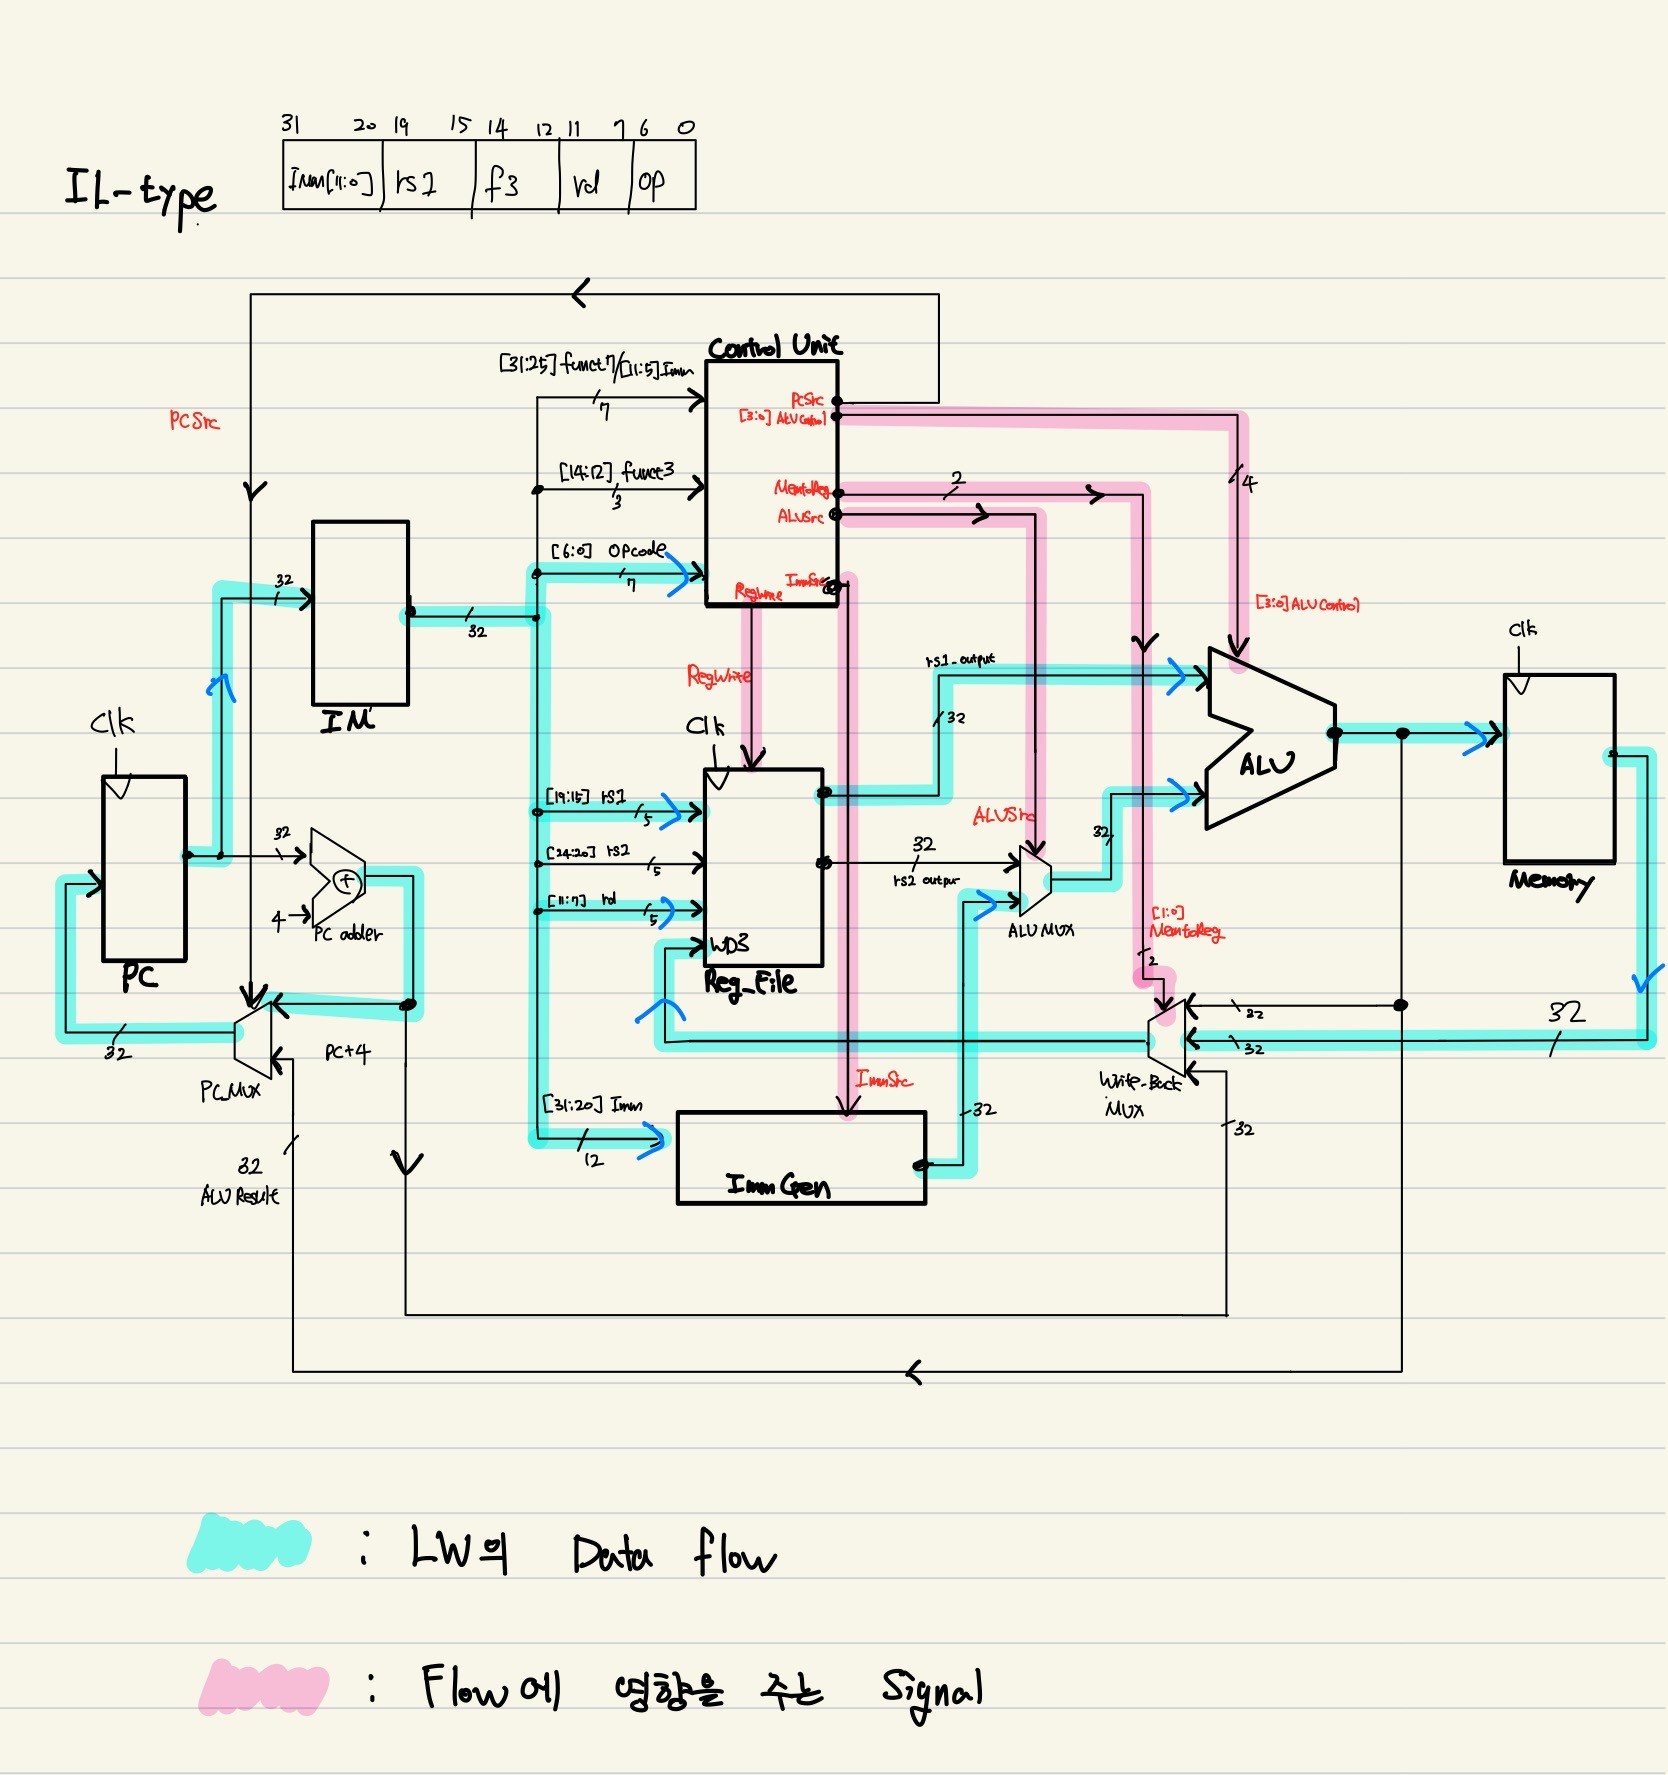 31 20 19 15 14 12 11 7 6 0
IL-type
Imm[11:0] rs1 f3 rd op
Control Unit
[31:25] funct7/[11:5]Imm
7
PCSrc
[3:0] ALUControl
PCSrc
[14:12] funct3
3
MemtoReg
2
4
ALUSrc
[6:0] OPcode
7
ImmSrc
RegWrite
32
32
[3:0] ALUControl
Clk
IM
RegWrite
rs1_output
32
Clk
Clk
ALU
[19:15] rs1
5
ALUSrc
32
32
[24:20] rs2
5
32
rs2 output
Memory
+
4
PC adder
[11:7] rd
5
WD3
ALU MUX
[1:0]
MemtoReg
2
PC
Reg_File
32
32
32
32
PC+4
PC_MUX
Write_Back
MUX
ImmSrc
[31:20] Imm
12
32
32
32
ALU Result
Imm Gen
: LW의 Data flow
: Flow에 영향을 주는 Signal